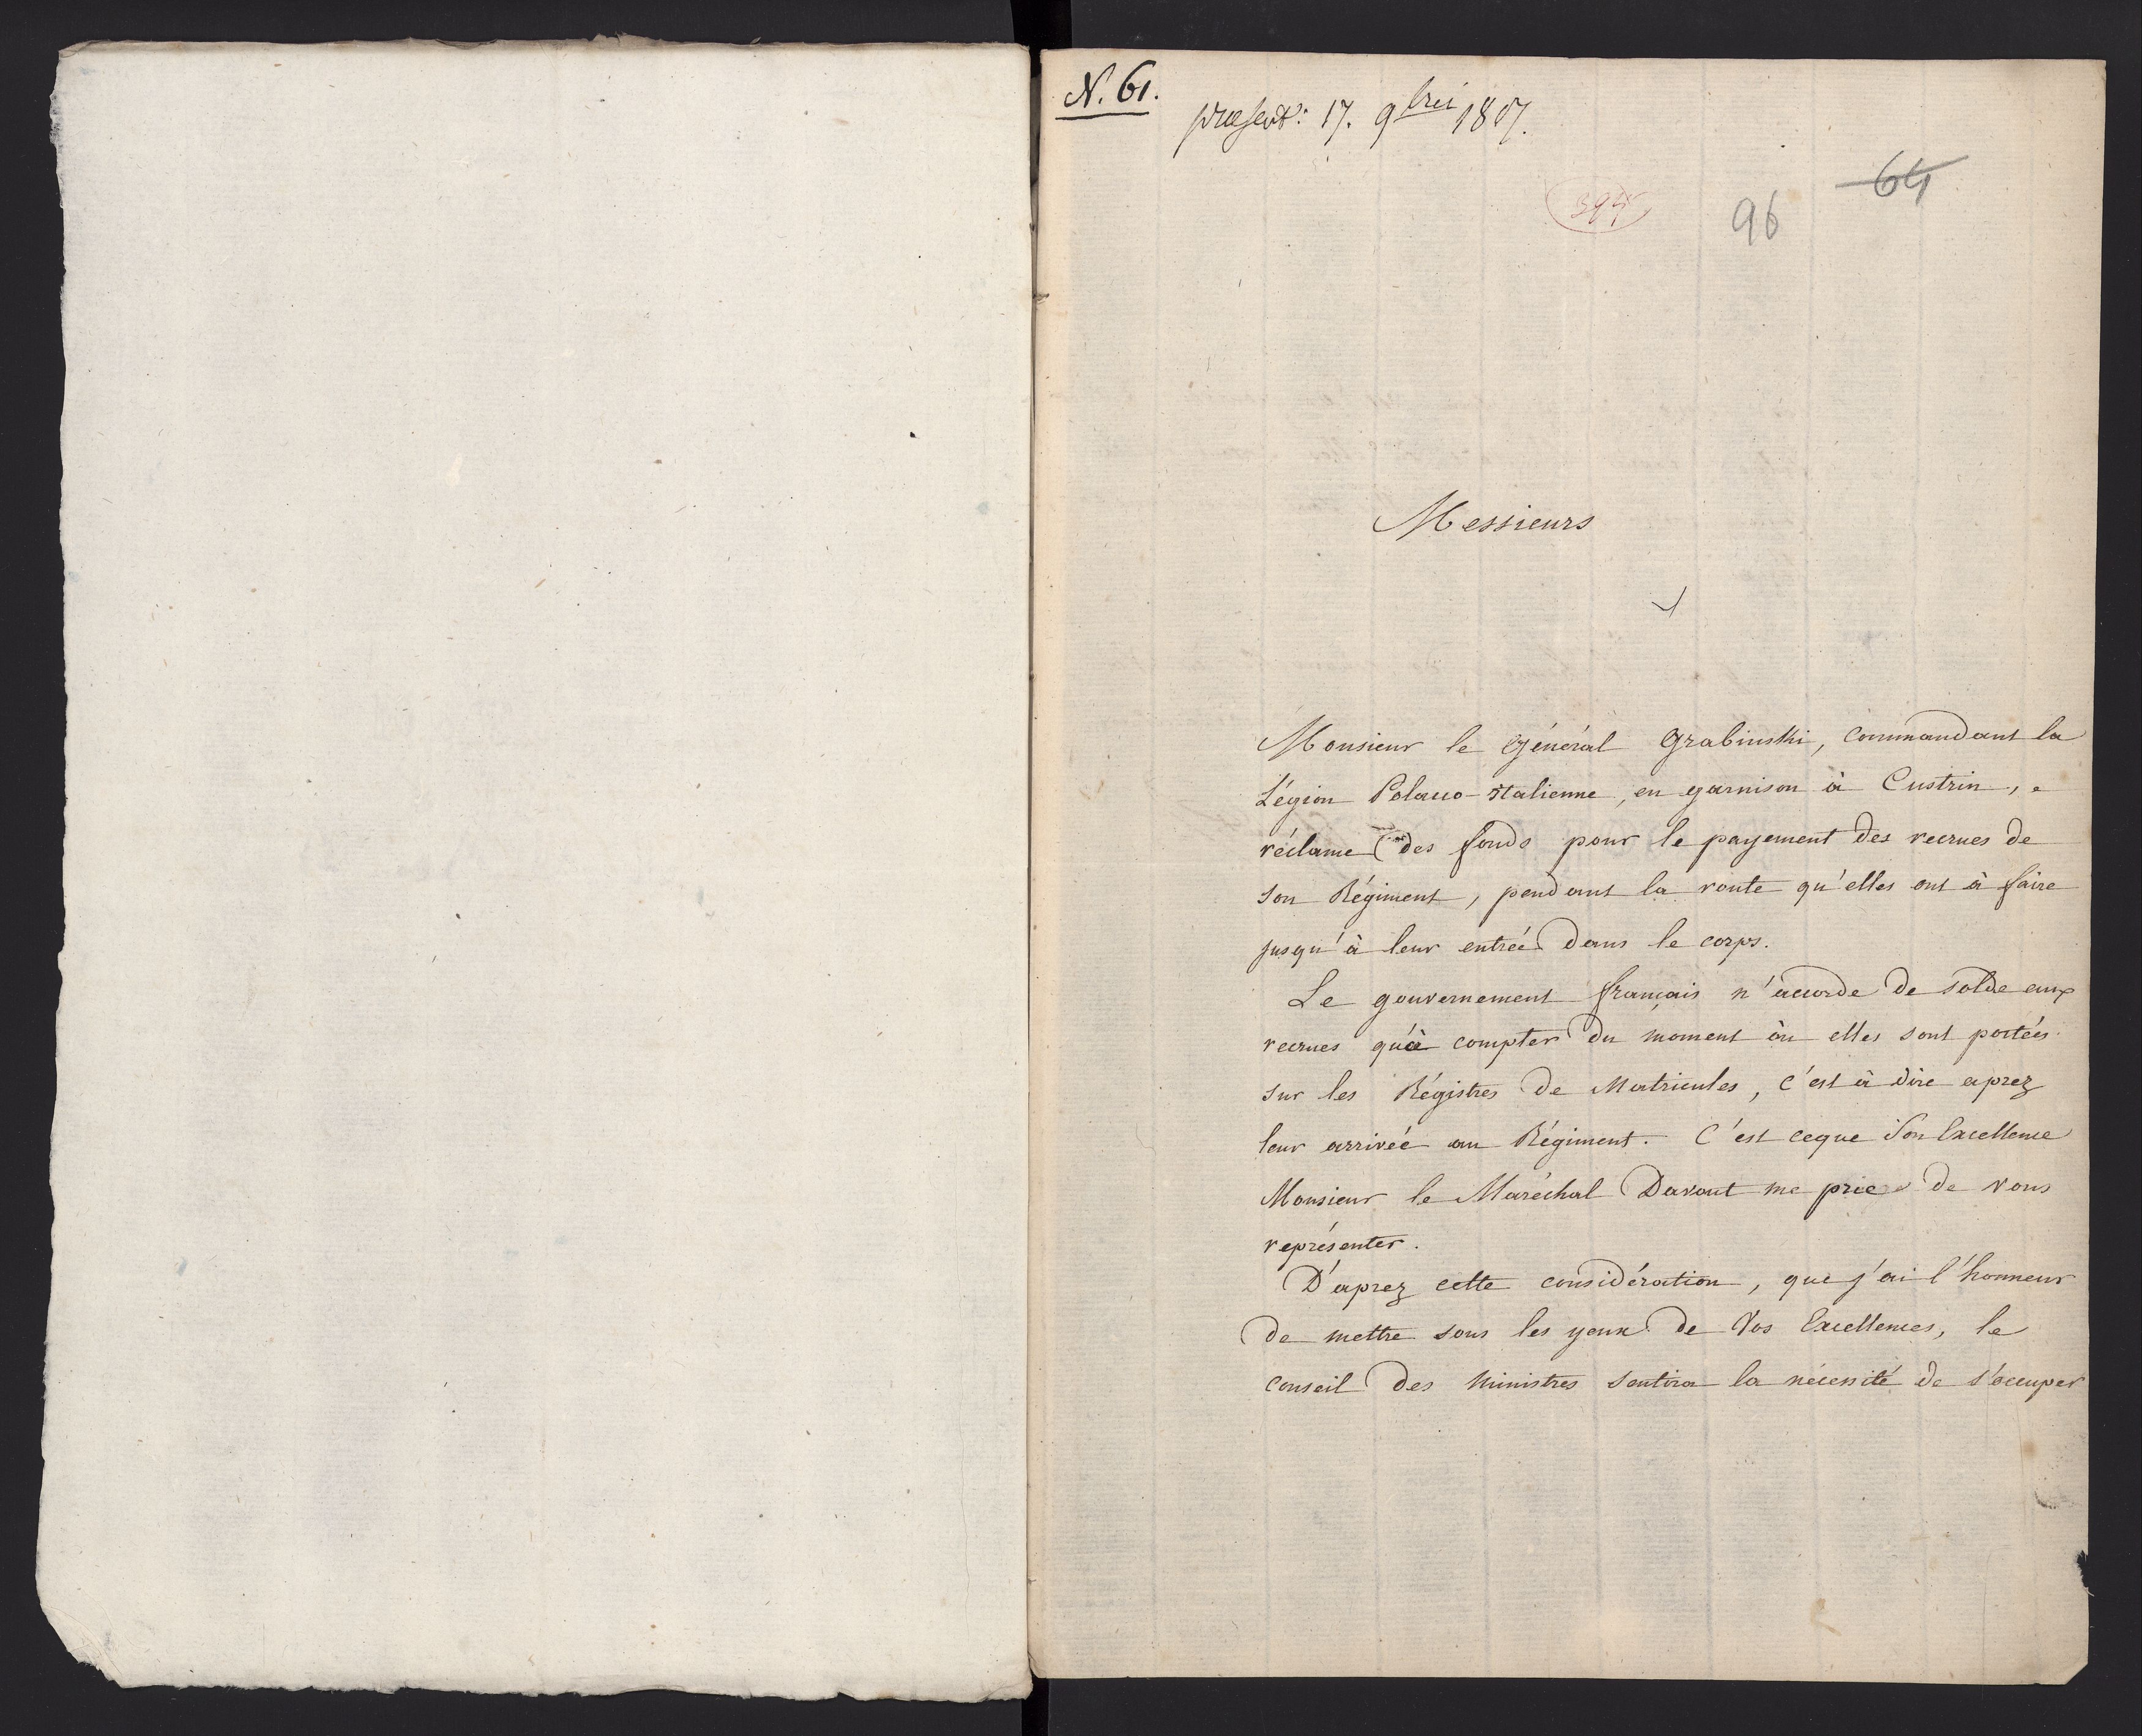 N. 61.
praesent: 17. 9bris 1807.
96
64
Messieurs
Monsieur le Général Grabinski, commandant la
Légion Polacco-Italienne, en garnison à Custrin,
réclame des fonds pour le payement des recrues de
son Régiment, pendant la route qu'elles ont à faire
jusqu'à leur entreé dans le corps.
Le gouvernement français n'accorde de solde aux
recrues qu'à compter du moment ou elles sont porteés
sur les Régistres de Matricules, c'est à dire aprez
leur arriveé au Régiment. C'est ceque Son Excellence
Monsieur le Maréchal Davout me prie de vous
représenter.
D'aprez cette considération, que j'ai l'honneur
de mettre sous les yeux de Vos Excellences, le
conseil des Ministres sentira la nécessité de s'occuper